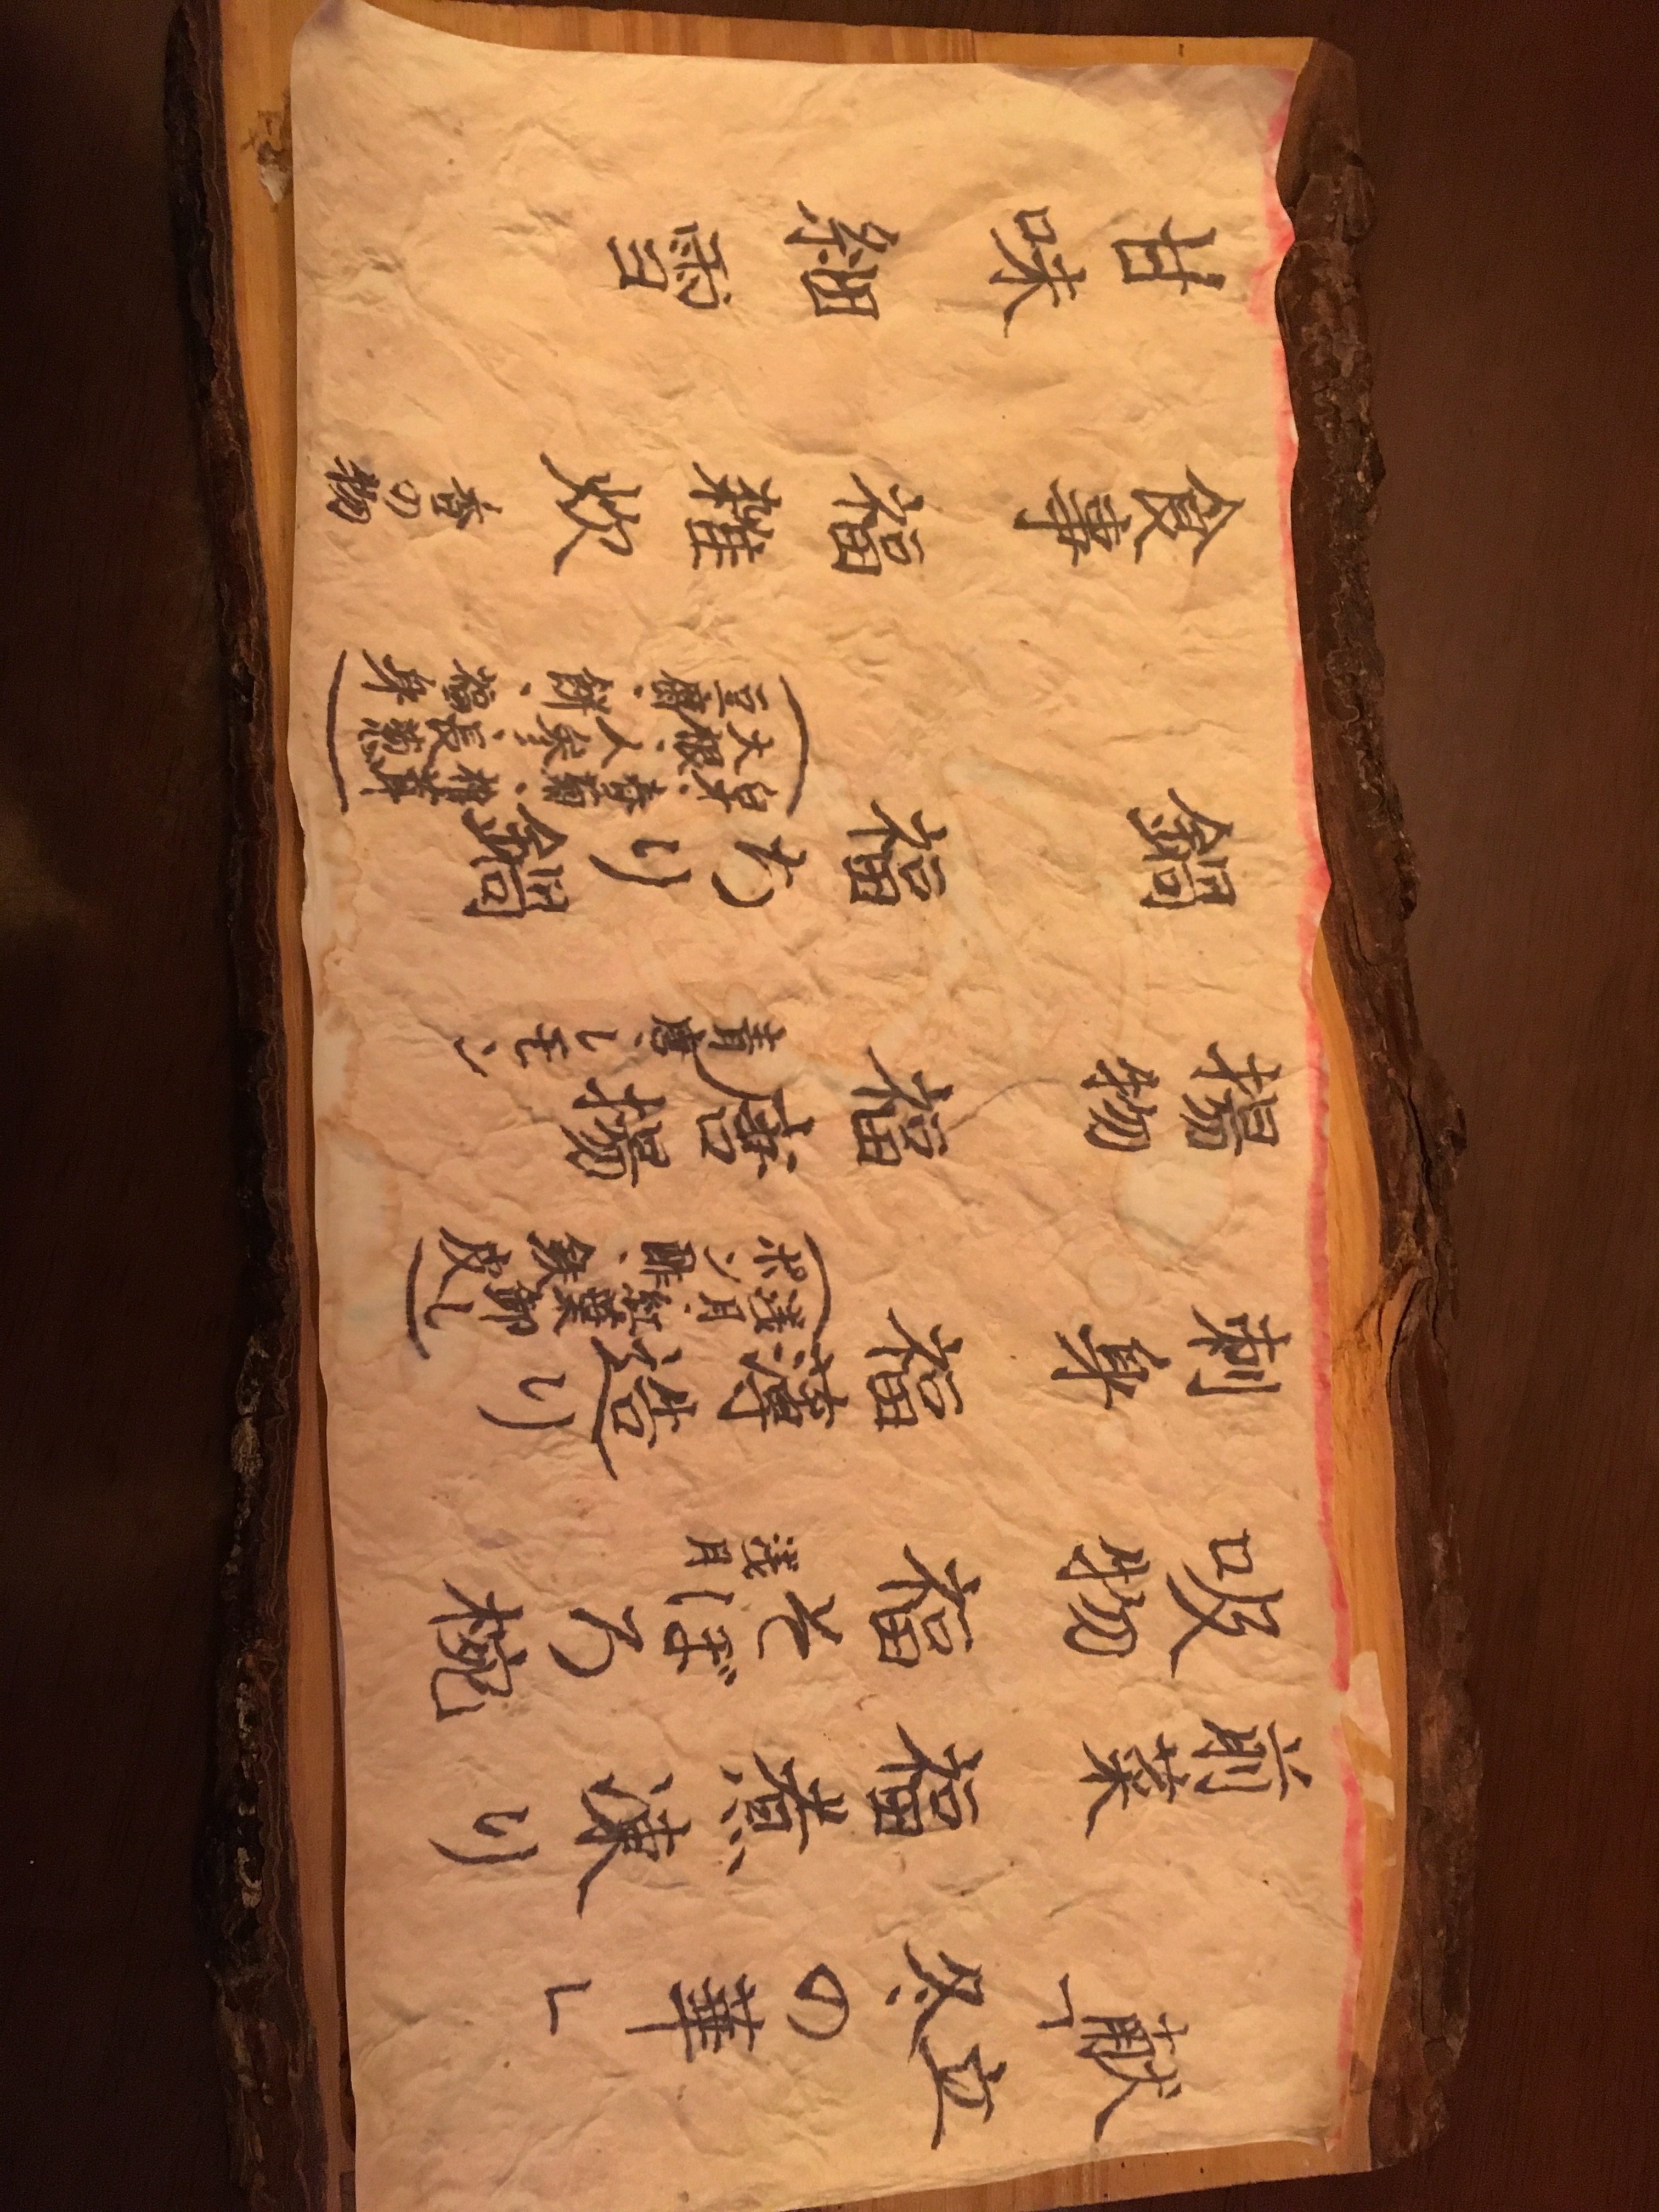 献立
「冬の華」
前菜
福煮凍り
吸物
福そぼろ椀
浅月
刺身
福薄造り
(浅月、紅葉卸し
ポン酢、鉄皮)
揚物
福唐揚
青唐、レモン
鍋
福ちり鍋
(白菜、春菊、椎茸
大根、人参、長葱
豆腐、餅、福身)
食事
福雑炊
香の物
甘味
細雪